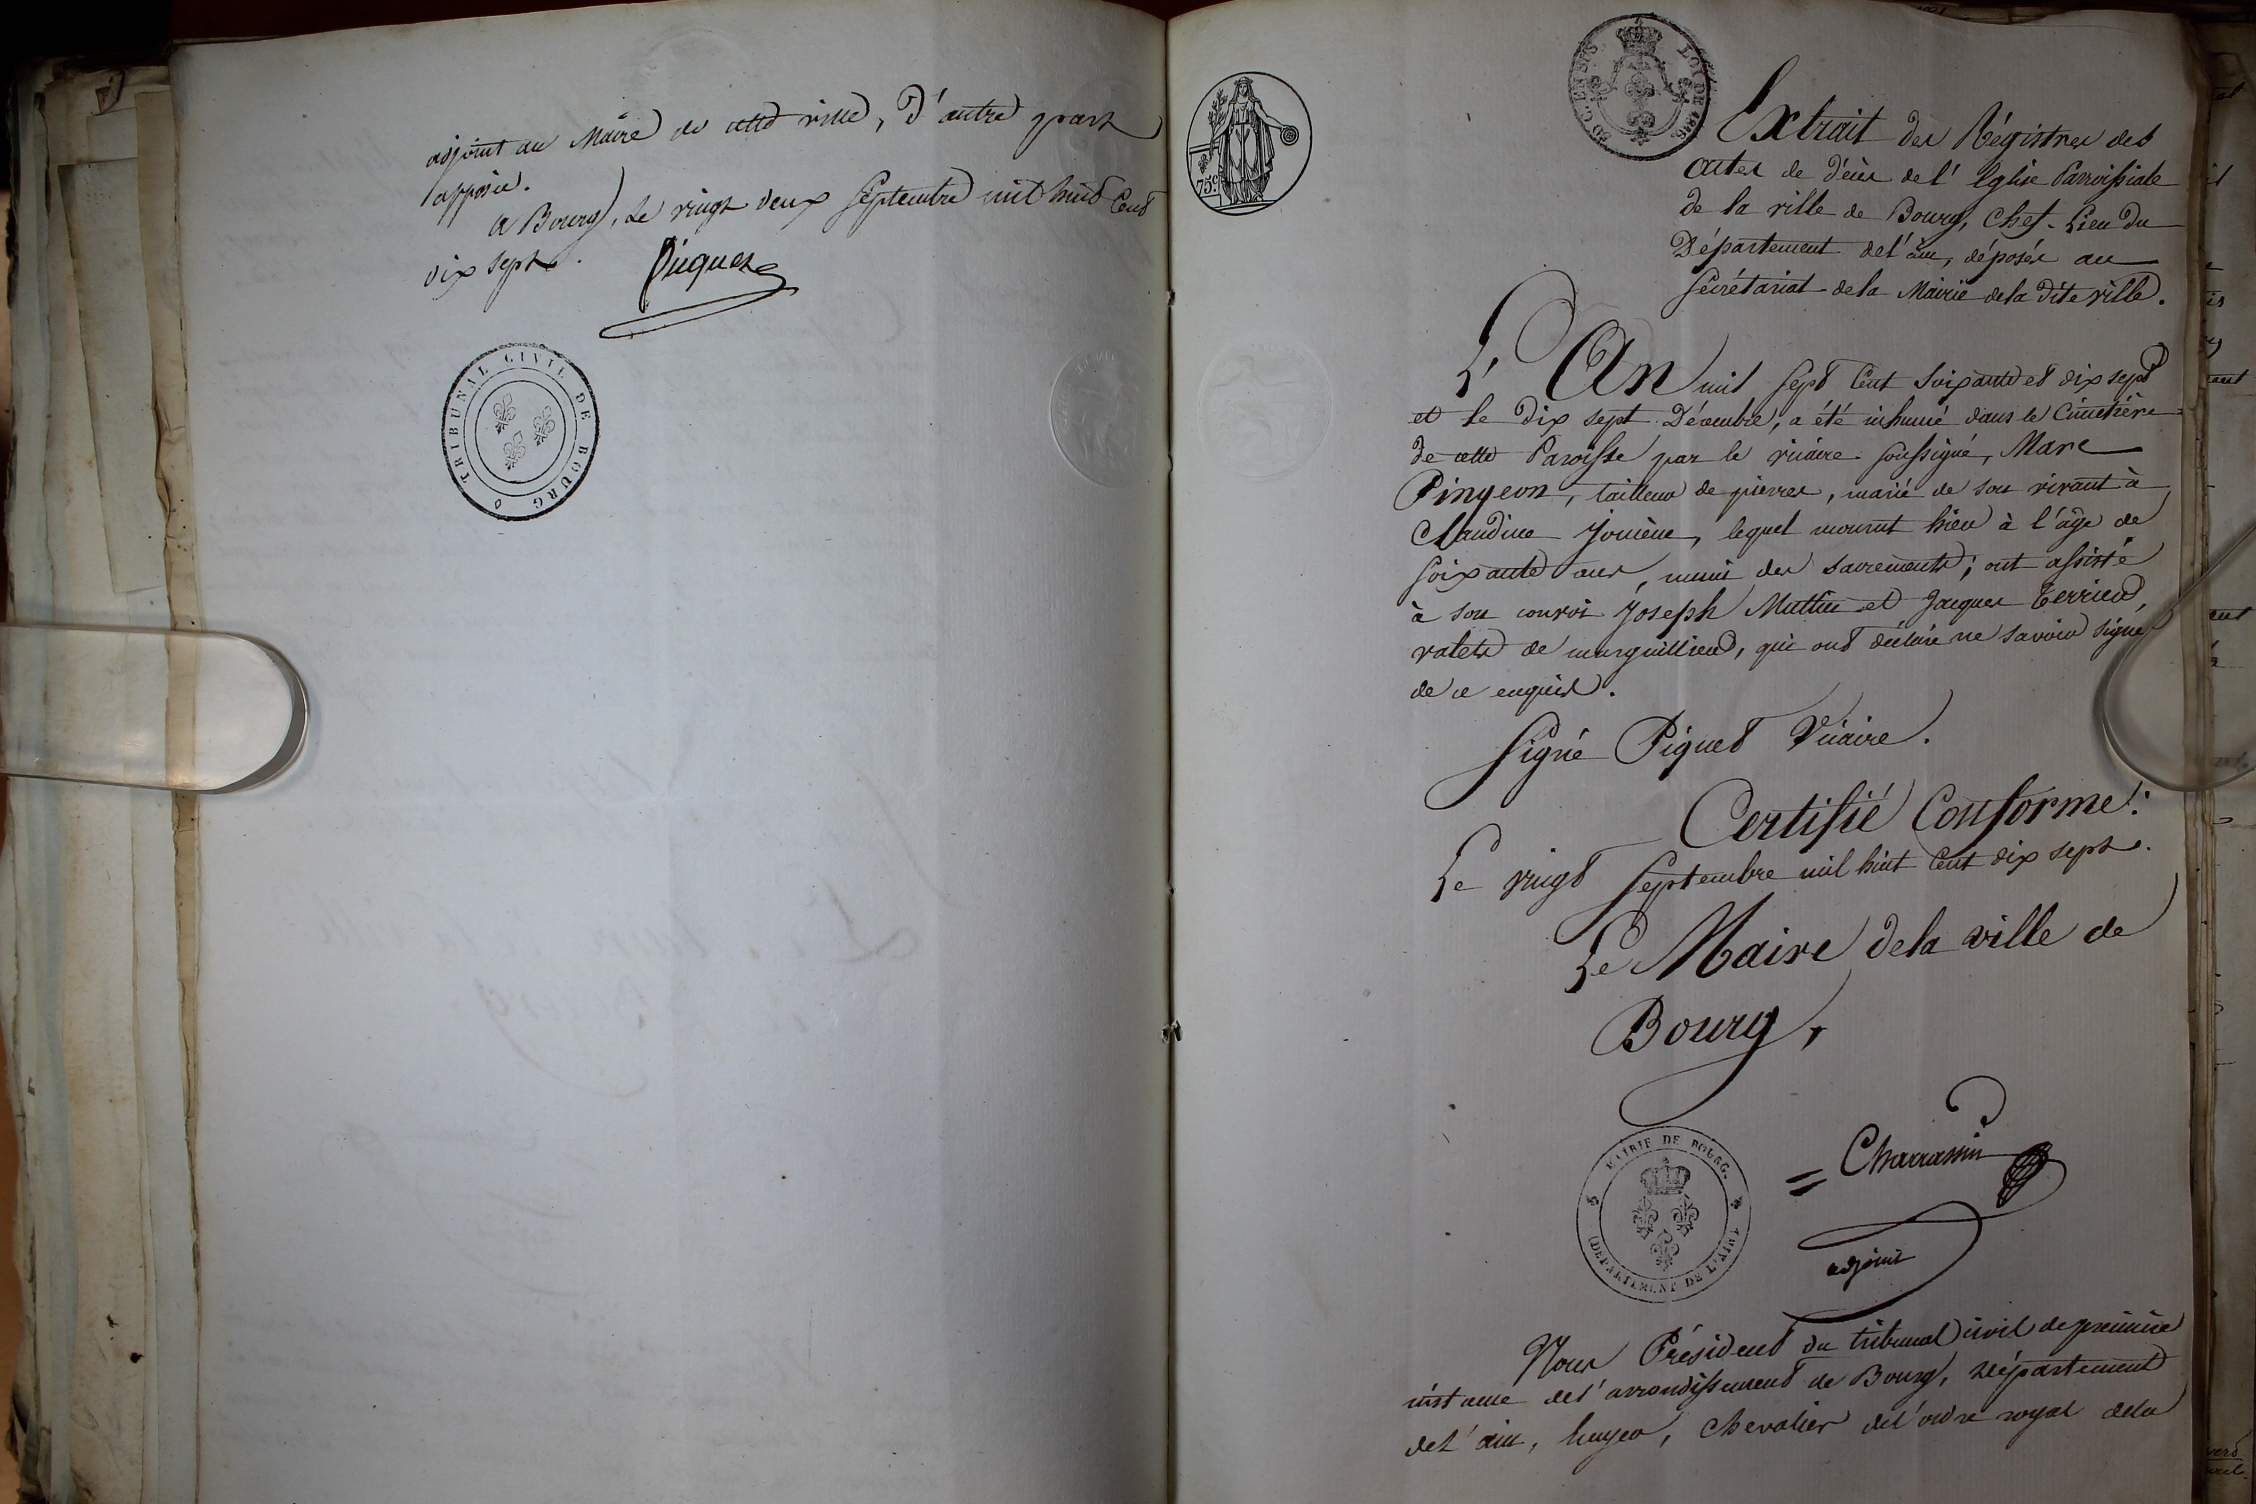 adjoint au Maire de cette ville, d'autre part
apposée.
a Bourg, le vingt deux Septembre mil huit Cent
dix sept.
Piquet
TRIBUNAL CIVIL DE BOURG
75c
LOI DE 1816
Extrait des Régistres des
actes de décès de l'Eglise Parroissiale
de la ville de Bourg, Chef-Lieu du
Département de l'ain, déposés au
Secrétariat de la Mairie de la dite ville.
L'An mil sept Cent soixante et dix sept
et le dix sept Décembre, a été inhumé dans le Cimetière
de cette Paroisse par le vicaire soussigné, Marc
Pingeon, tailleur de pierres, marié de son vivant à
Claudine Jouvène, lequel mourut hier à l'âge de
soixante ans, muni des sacrements; ont assisté
à son convoi Joseph Muttin et Jacques Terrier,
valets de marguillier, qui ont déclaré ne savoir signer
de ce enquis.
Signé Piquet Vicaire.
Certifié Conforme:
Le vingt Septembre mil huit Cent dix sept.
Le Maire de la ville de
Bourg,
MAIRIE DE BOURG.
(DEPARTEMENT DE L'AIN)
Charrassin
adjoint
Nous Président du tribunal civil de première
instance de l'arrondissement de Bourg, Département
de l'ain, Chevalier de l'ordre royal de la